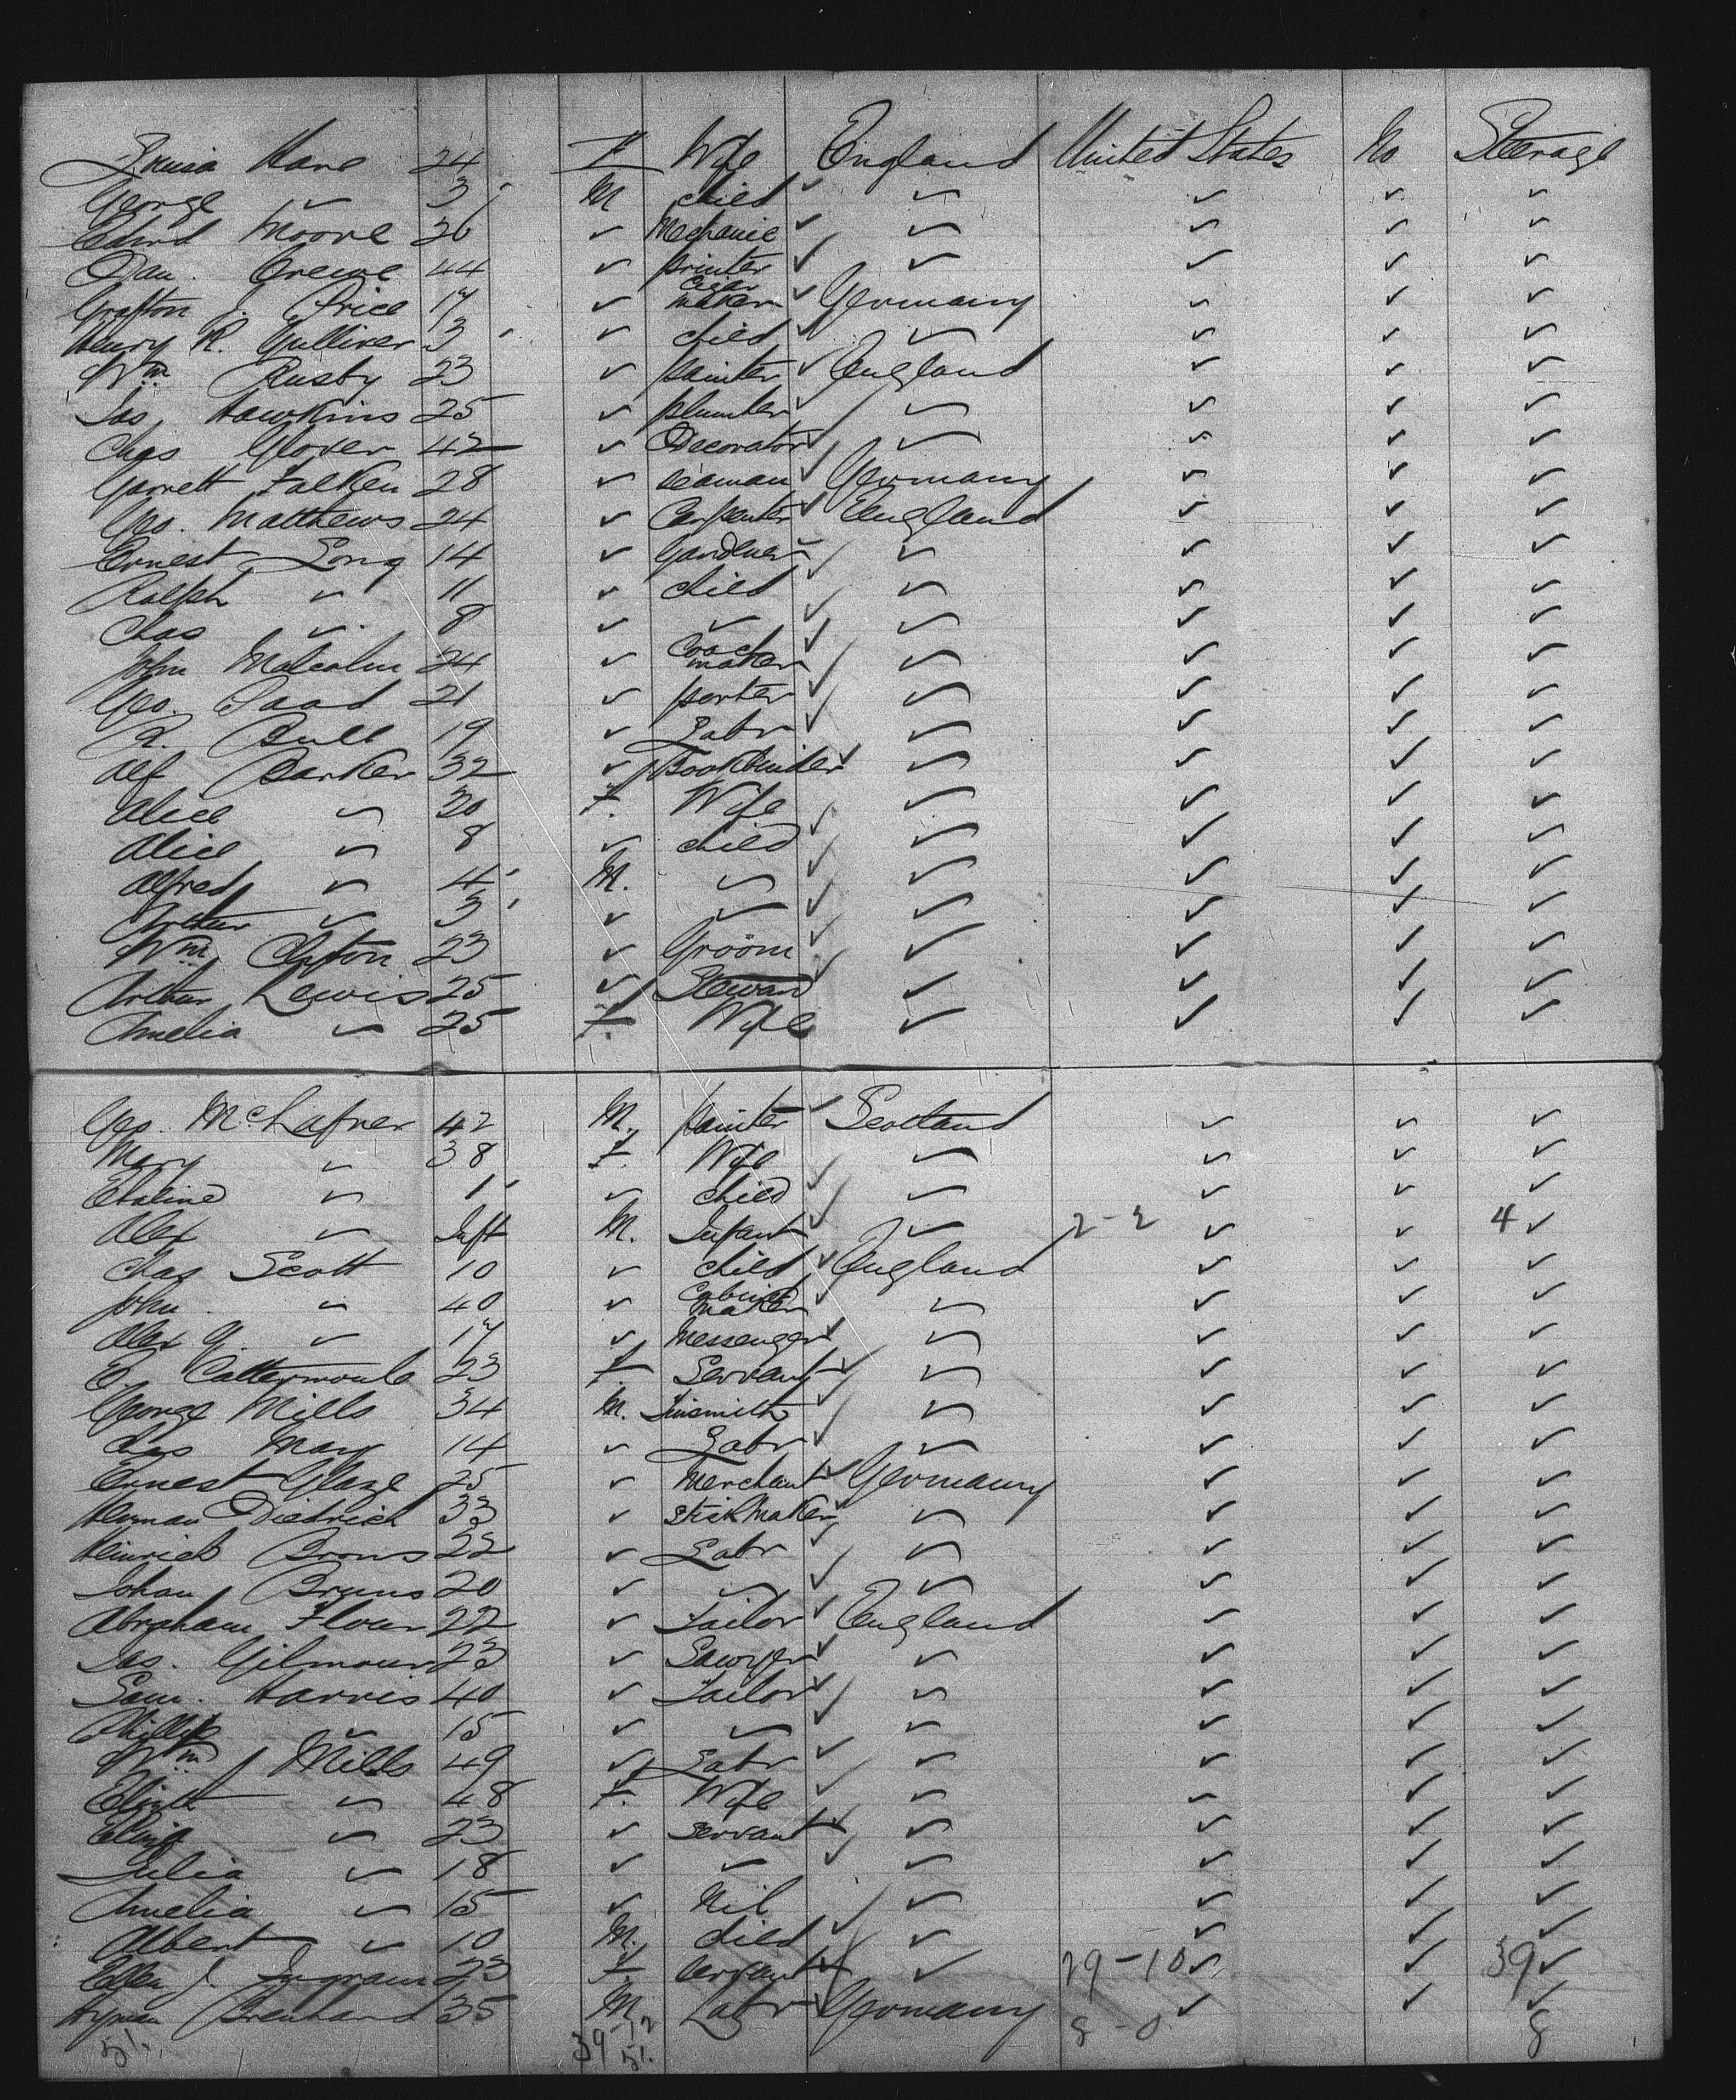 Louisa Hare 24 F Wife England United States No Steerage
George ✓ 3 M child ✓ ✓ ✓ ✓ ✓
Edwd Moore 26 ✓ Mechanic ✓ ✓ ✓ ✓ ✓
Dan. 44 ✓ printer ✓ ✓ ✓ ✓ ✓
Grafton J. Price 17 ✓ Cigar maker ✓ Germany ✓ ✓ ✓
Henry R. Gulliver 3 ✓ child ✓ ✓ ✓ ✓ ✓
Wm Rusby 23 ✓ painter ✓ England ✓ ✓ ✓
Jas Hawkins 25 ✓ plumber ✓ ✓ ✓ ✓ ✓
Chas Glover 42 ✓ Decorator ✓ ✓ ✓ ✓ ✓
Garrett Falken 28 ✓ seaman ✓ Germany ✓ ✓ ✓
Geo. Matthews 24 ✓ Carpenter ✓ England ✓ ✓ ✓
Ernest Long 14 ✓ Gardener ✓ ✓ ✓ ✓ ✓
Ralph ✓ 11 ✓ child ✓ ✓ ✓ ✓ ✓
Chas ✓ 8 ✓ ✓ ✓ ✓ ✓ ✓ ✓
John Malcolm 24 ✓ Coach maker ✓ ✓ ✓ ✓ ✓
Geo. Saad 21 ✓ porter ✓ ✓ ✓ ✓ ✓
R. Bull 19 ✓ Labr ✓ ✓ ✓ ✓ ✓
Alf Barker 32 ✓ Bookbinder ✓ ✓ ✓ ✓ ✓
Alice ✓ 30 F. Wife ✓ ✓ ✓ ✓ ✓
Alice ✓ 8 ✓ child ✓ ✓ ✓ ✓ ✓
Alfred ✓ 4 M. ✓ ✓ ✓ ✓ ✓ ✓
Arthur ✓ 3 ✓ ✓ ✓ ✓ ✓ ✓ ✓
Wm Clifton 23 ✓ Groom ✓ ✓ ✓ ✓ ✓
Arthur Lewis 25 ✓ Steward ✓ ✓ ✓ ✓
Amelia ✓ 25 F. Wife ✓ ✓ ✓ ✓
Geo. 42 M. painter ✓ Scotland ✓ ✓ ✓
Mary ✓ 38 F. Wife ✓ ✓ ✓ ✓ ✓
✓ 1 ✓ child ✓ ✓ ✓ ✓ ✓
Alex ✓ Inft M. Infant ✓ ✓ 2-2 ✓ ✓ 4 ✓
Chas Scott 10 ✓ child ✓ England ✓ ✓ ✓
John ✓ 40 ✓ Cabinet maker ✓ ✓ ✓ ✓ ✓
Alex G. ✓ 17 ✓ Messenger ✓ ✓ ✓ ✓ ✓
E. Cattermoule 23 F. Servant ✓ ✓ ✓ ✓ ✓
George Mills 34 M. Tinsmith ✓ ✓ ✓ ✓ ✓
Chas May 14 ✓ Labr ✓ ✓ ✓ ✓ ✓
Ernest Glaze 25 ✓ Merchant ✓ Germany ✓ ✓ ✓
Herman Dietrich 33 ✓ Stick Maker ✓ ✓ ✓ ✓ ✓
Heinrich Brons 22 ✓ Labr ✓ ✓ ✓ ✓ ✓
Johan Bruns 20 ✓ ✓ ✓ ✓ ✓ ✓ ✓
Abraham Flour 22 ✓ Tailor ✓ England ✓ ✓ ✓
Jas. Gilmour 23 ✓ Sawyer ✓ ✓ ✓ ✓ ✓
Sam. Harris 40 ✓ Tailor ✓ ✓ ✓ ✓ ✓
Phillip ✓ 15 ✓ ✓ ✓ ✓ ✓ ✓ ✓
Wm Mills 49 ✓ Labr ✓ ✓ ✓ ✓ ✓
Elizth ✓ 48 F. Wife ✓ ✓ ✓ ✓ ✓
Eliza ✓ 23 ✓ Servant ✓ ✓ ✓ ✓ ✓
Julia ✓ 18 ✓ ✓ ✓ ✓ ✓ ✓ ✓
Amelia ✓ 15 ✓ Nil ✓ ✓ ✓ ✓ ✓
Albert ✓ 10 M. child ✓ ✓ ✓ ✓ ✓
Ellen J. Ingram 23 F. Servant ✓ ✓ 29-10 ✓ ✓ 39 ✓
Hyman 35 M. Labr ✓ Germany 8-0 ✓ ✓ ✓ 8
51. 39-12 51.